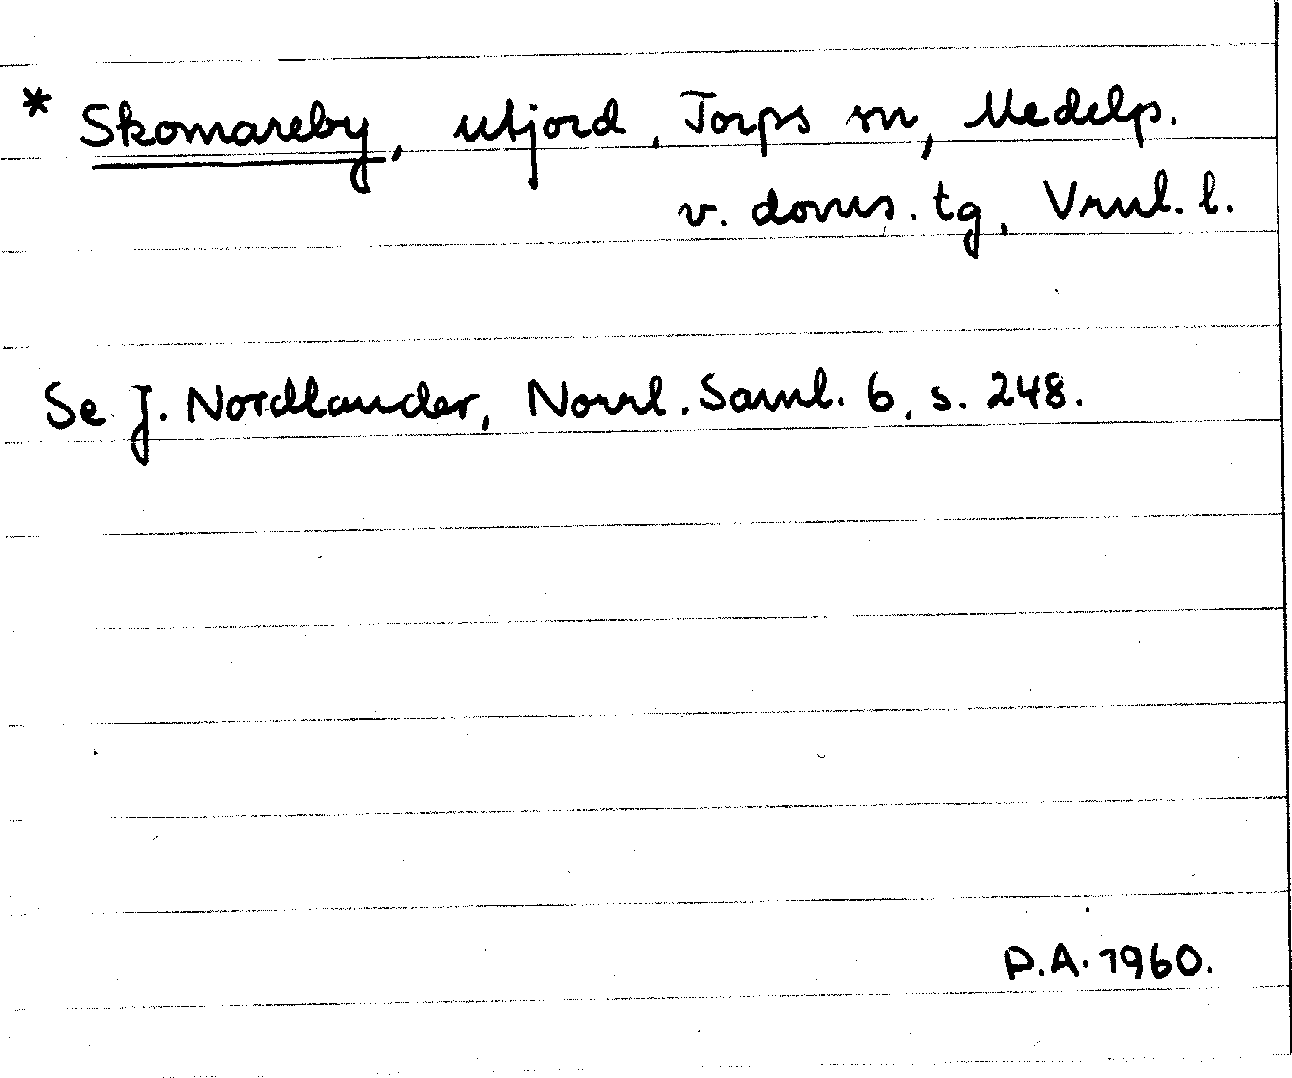 * Skomareby, utjord, Torps sn, Medelp.
v. doms. tg, Vrnl. l.
Se J. Nordlander, Norrl. Saml. 6, s. 248.
P.A. 1960.